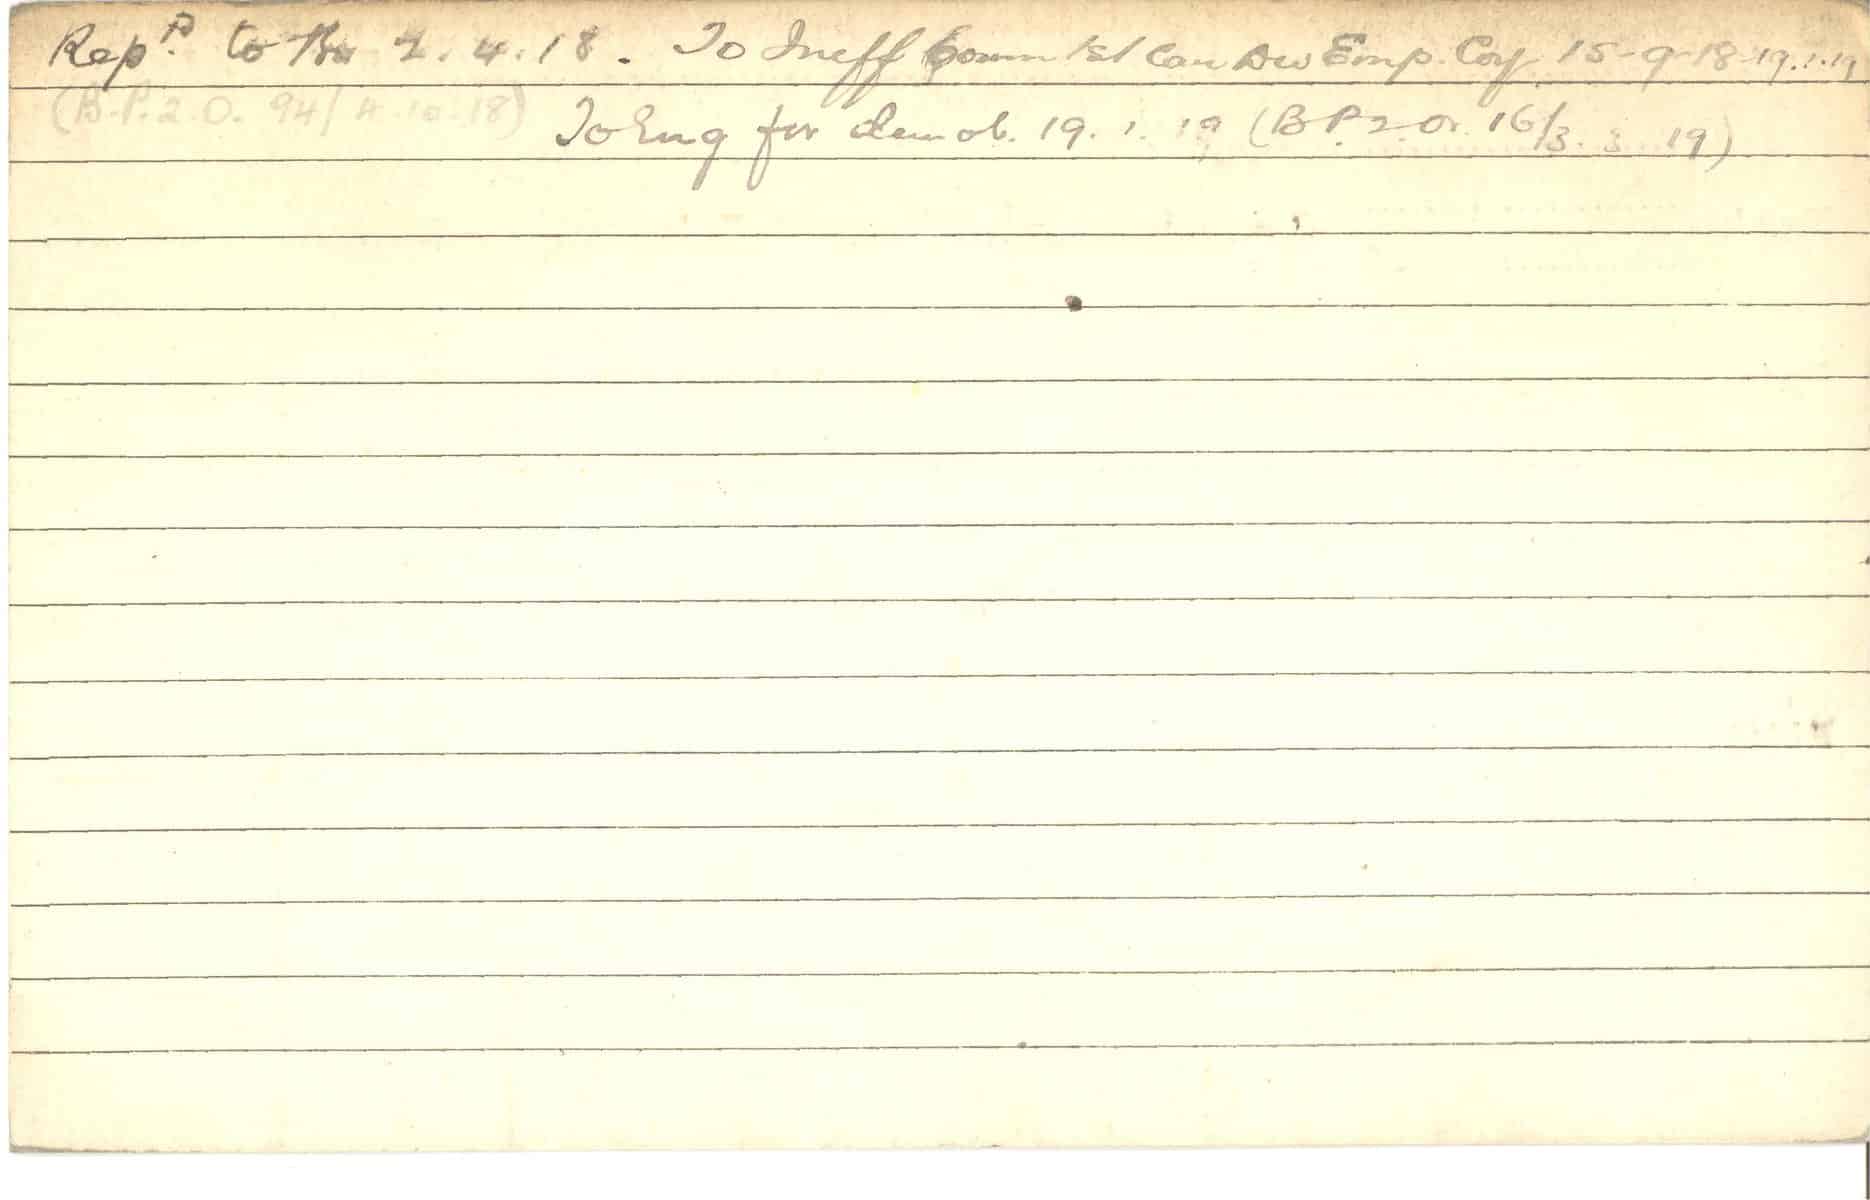 Rep<sup>d</sup>. to Bn 2.4.18. To Ineff Comm 1st Can Div Emp. Coy 15-9-18 19.1.19
(B.P.2.O. 94/ 4.10.18) To Eng for demob. 19.1.19 (B.P.2.Or. 16/3.3.19)